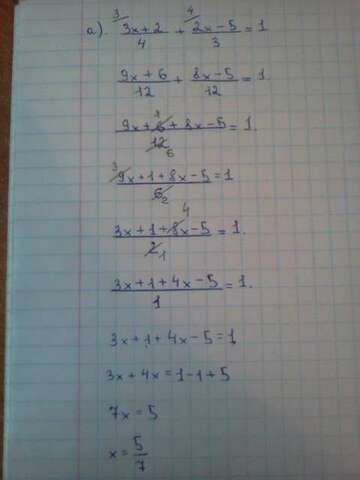 а). ³⁄ (3x+2)/4 + ⁴⁄ (2x-5)/3 = 1
(9x+6)/12 + (8x-5)/12 = 1.
(9x+6 1+8x-5)/(12 6) = 1.
(3 9x+1+8x-5)/(6 2) = 1
(3x+1+8x 4-5)/(2 1) = 1.
(3x+1+4x-5)/1 = 1.
3x+1+4x-5=1
3x+4x=1-1+5
7x=5
x=5/7